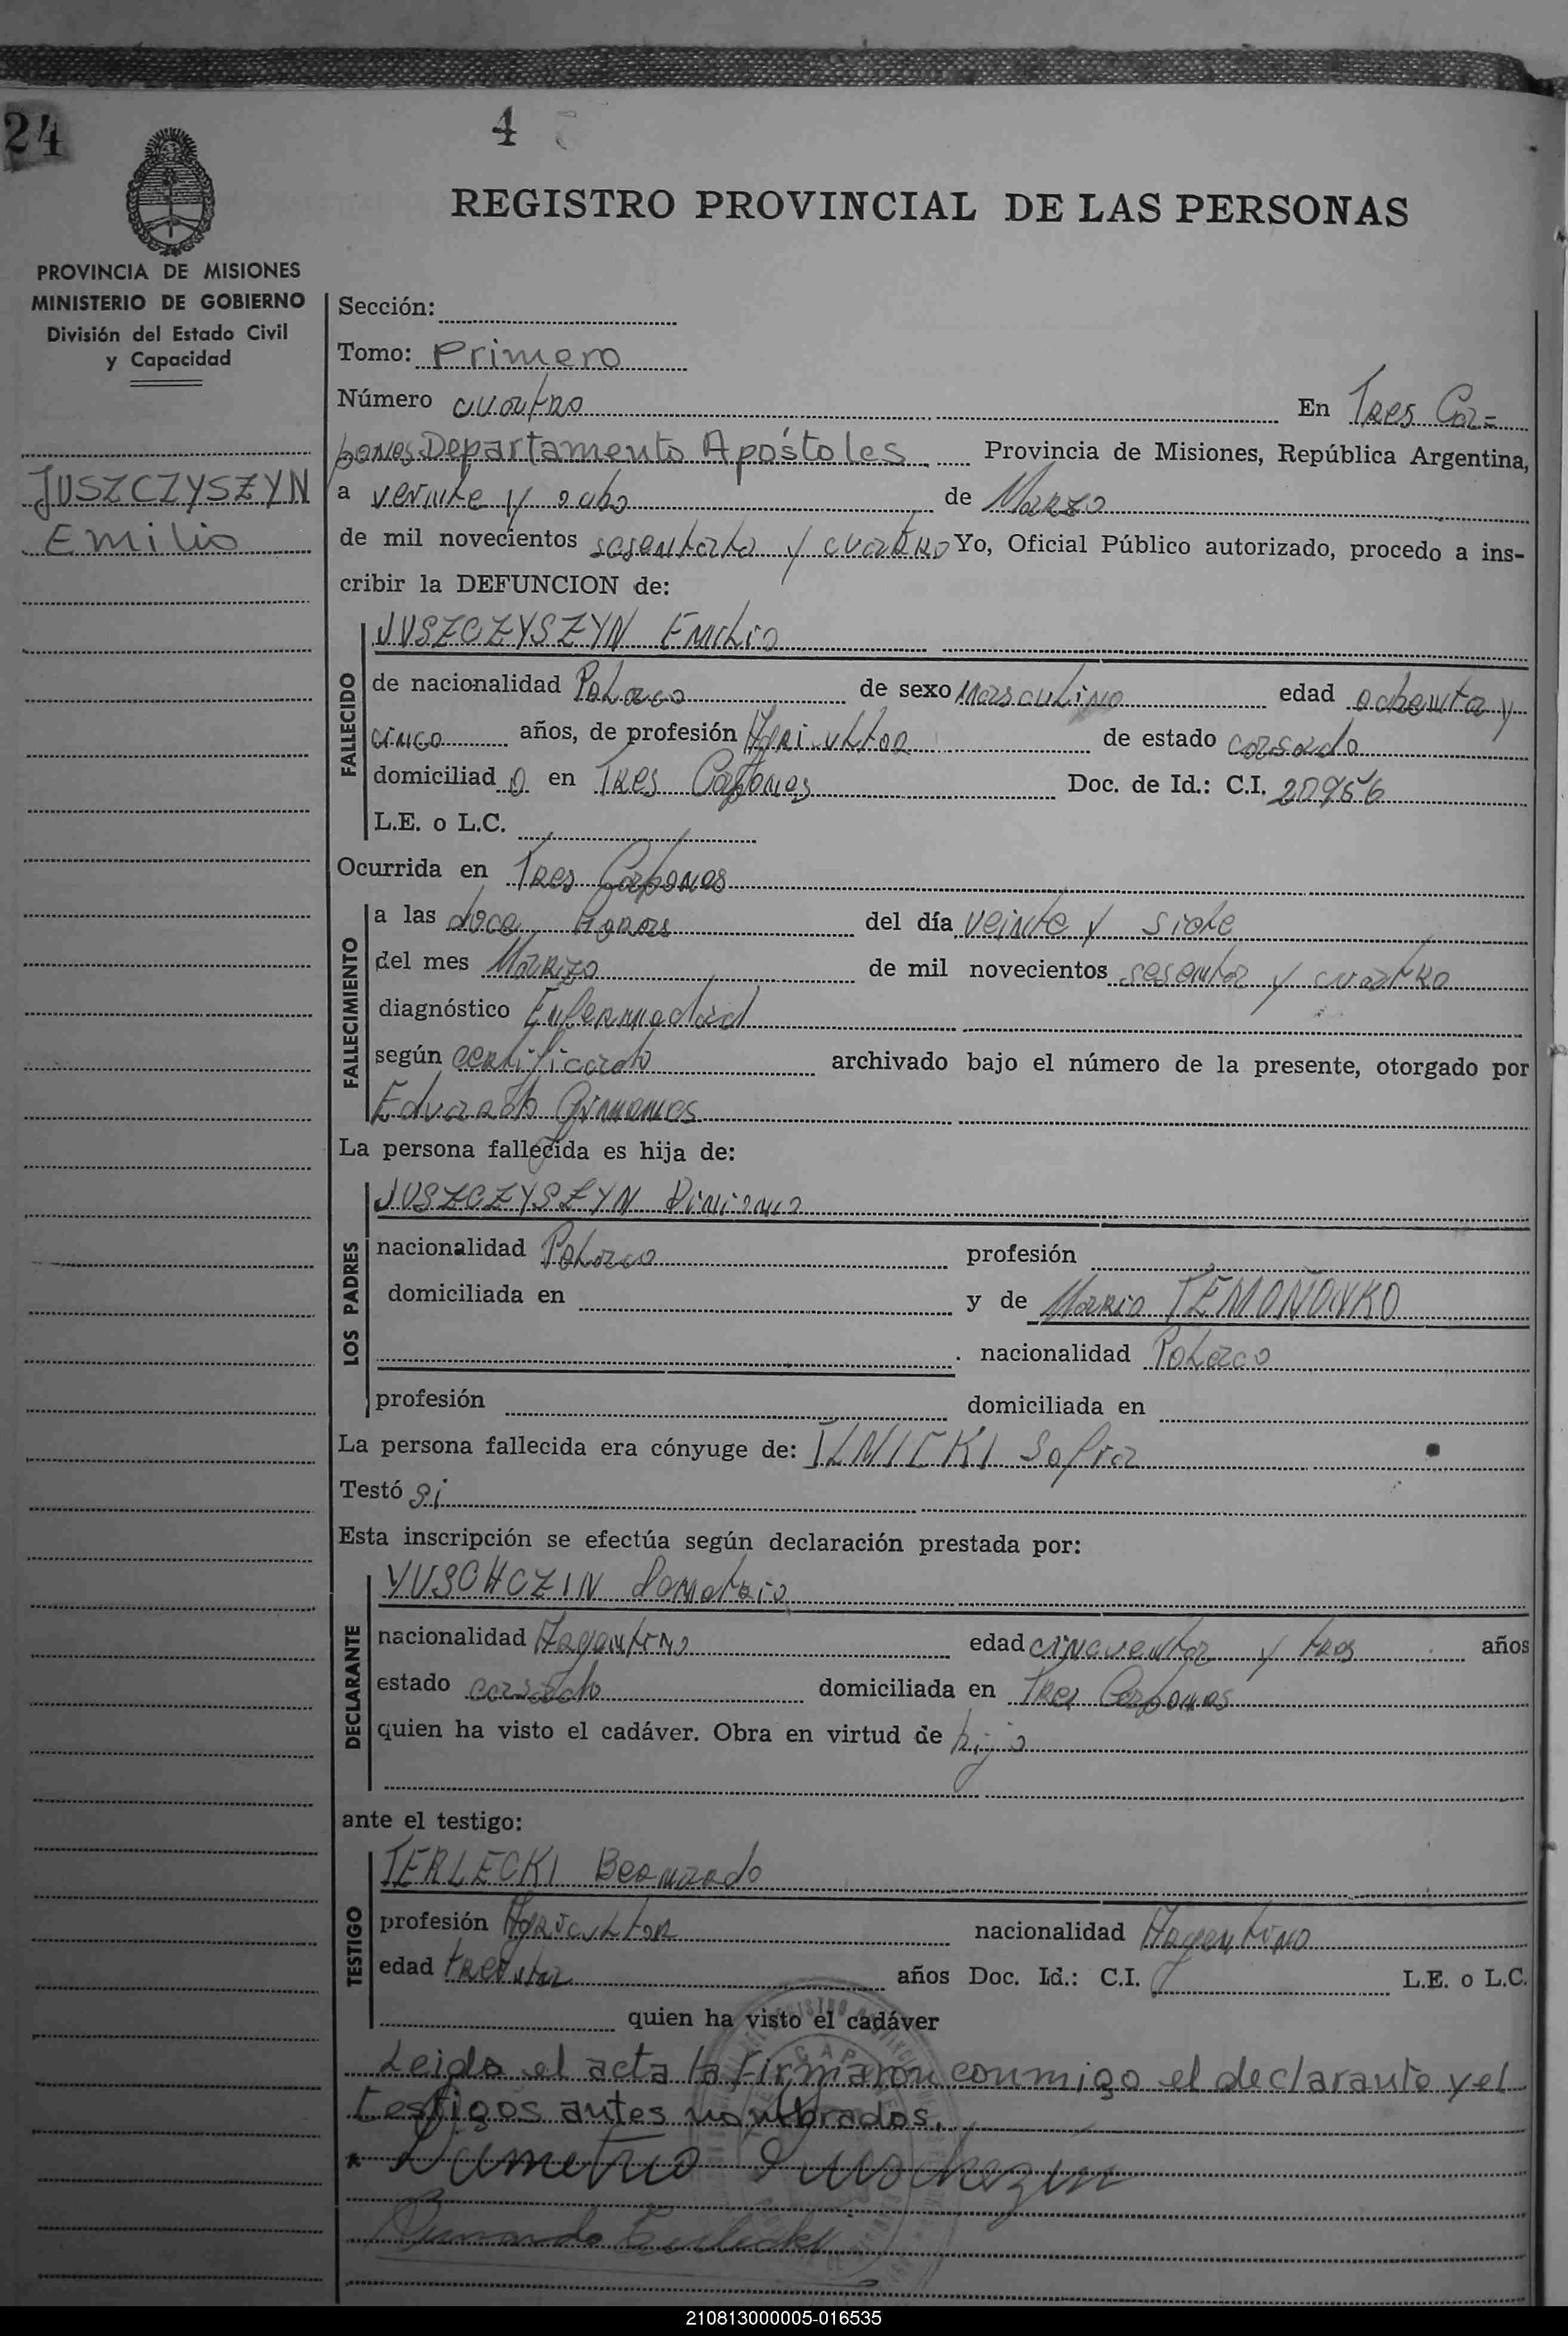 24
4
REGISTRO PROVINCIAL DE LAS PERSONAS
PROVINCIA DE MISIONES
MINISTERIO DE GOBIERNO
División del Estado Civil
y Capacidad
JUSZCZYSZYN
Emilio
Sección:
Tomo: Primero
Número cuatro En Tres Ca=
pones Departamento Apóstoles Provincia de Misiones, República Argentina,
a veinte y ocho de Marzo
de mil novecientos sesentata y cuatro Yo, Oficial Público autorizado, procedo a ins-
cribir la DEFUNCION de:
FALLECIDO
JUSZCZYSZYN Emilio
de nacionalidad Polaco de sexo Masculino edad ochenta y
cinco años, de profesión Agricultor de estado casado
domiciliad o en Tres Capones Doc. de Id.: C.I. 20956
L.E. o L.C.
Ocurrida en Tres Capones
FALLECIMIENTO
a las doce horas del día veinte y siete
del mes Marzo de mil novecientos sesenta y cuatro
diagnóstico Enfermedad
según certificado archivado bajo el número de la presente, otorgado por
Eduardo
La persona fallecida es hija de:
LOS PADRES
JUSZCZYSZYN
nacionalidad Polaco profesión
domiciliada en y de Maria TEMOÑOWKO
nacionalidad Polaco
profesión domiciliada en
La persona fallecida era cónyuge de: ILNICKI Sofia
Testó si
Esta inscripción se efectúa según declaración prestada por:
DECLARANTE
YUSCHCZIN Demetrio
nacionalidad Argentino edad cincuenta y tres años
estado casado domiciliada en Tres Capones
quien ha visto el cadáver. Obra en virtud de hijo
ante el testigo:
TESTIGO
TERLECKI Bernardo
profesión Agricultor nacionalidad Argentino
edad treinta años Doc. Id.: C.I. L.E. o L.C.
quien ha visto el cadáver
Leida el acta la firmaron conmigo el declarante y el
testigos antes nombrados.
Demetrio
Bernardo Terlecki
210813000005-016535